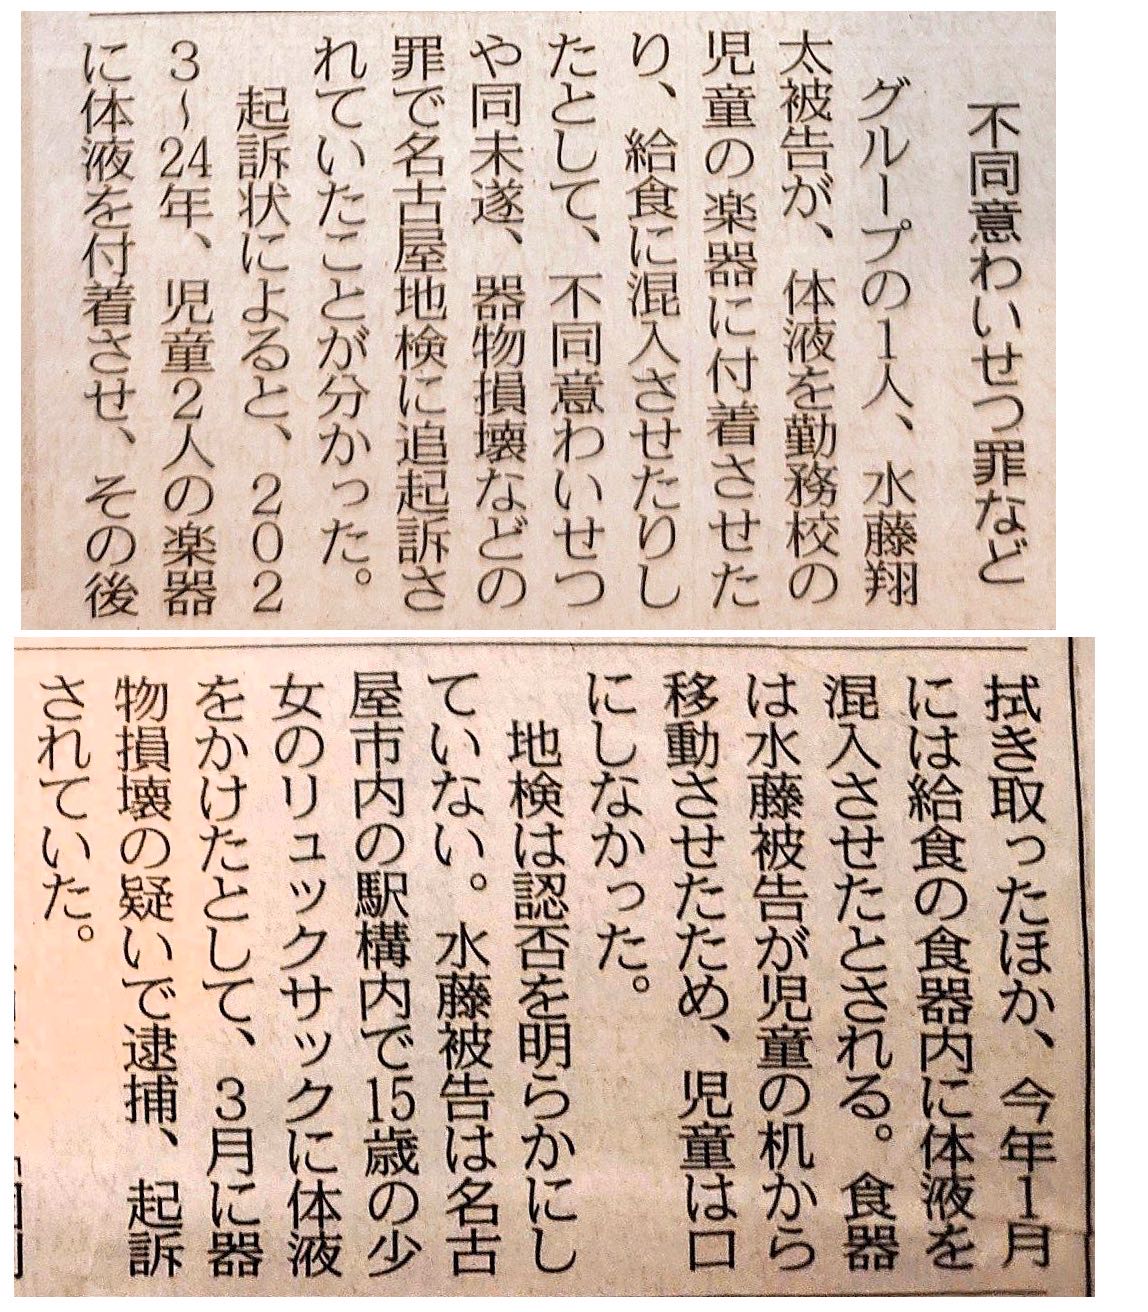 不同意わいせつ罪など
グループの1人、水藤翔
太被告が、体液を勤務校の
児童の楽器に付着させた
り、給食に混入させたりし
たとして、不同意わいせつ
や同未遂、器物損壊などの
罪で名古屋地検に追起訴さ
れていたことが分かった。
起訴状によると、202
3〜24年、児童2人の楽器
に体液を付着させ、その後
拭き取ったほか、今年1月
には給食の食器内に体液を
混入させたとされる。食器
は水藤被告が児童の机から
移動させたため、児童は口
にしなかった。
地検は認否を明らかにし
ていない。水藤被告は名古
屋市内の駅構内で15歳の少
女のリュックサックに体液
をかけたとして、3月に器
物損壊の疑いで逮捕、起訴
されていた。